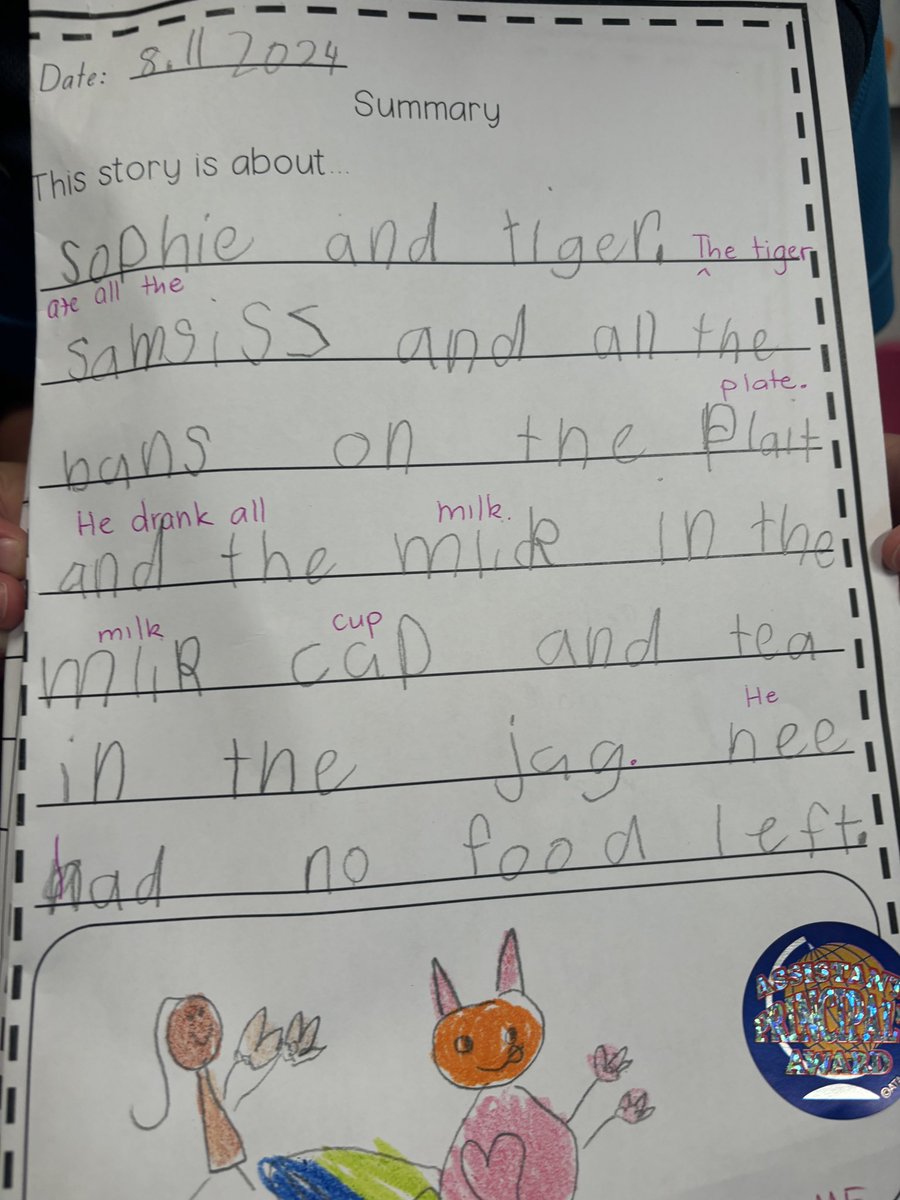 Date: 8.11 2024
Summary
This story is about...
sophie and tiger. The tiger
ate all the
samsiss and all the
plate.
bans on the plait
He drank all milk.
and the milck in the
milk cup
milk cap and tea
He
in the jag. hee
had no food left.
ASSISTANT
PRINCIPAL'S
AWARD